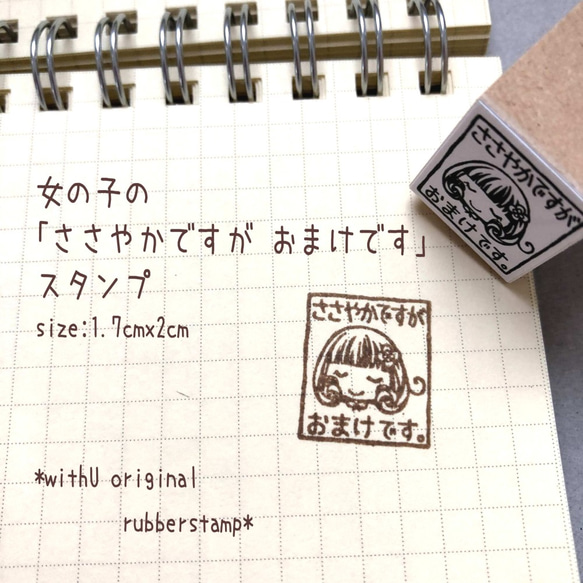 女の子の
「ささやかですが おまけです」
スタンプ
size:1.7cmx2cm
ささやかですが
おまけです。
ささやかですが
おまけです。
*withU original
rubberstamp*